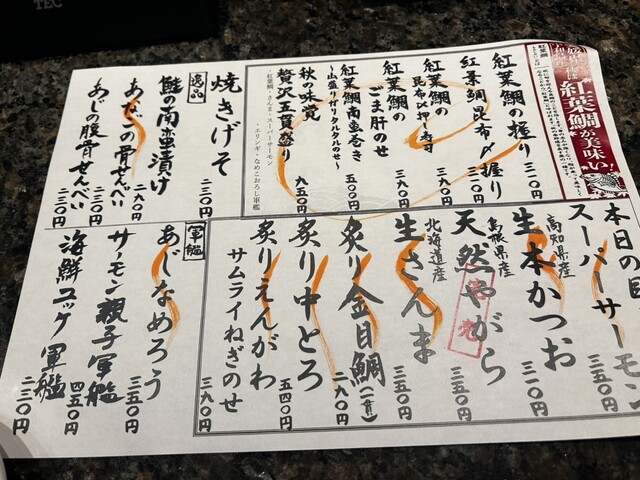 TEC
紅葉鯛が美味い!
紅葉鯛の握り 三一〇円
紅葉鯛昆布〆握り 三一〇円
紅葉鯛の
昆布〆押し寿司 三九〇円
紅葉鯛の
ごま肝のせ 三九〇円
紅葉鯛南蛮巻き
~山盛りガリタルタルのせ~ 五〇〇円
秋の味覚
贅沢五貫盛り 九五〇円
・紅葉鯛・さんま・スーパーサーモン
・エリンギ・なめこおろし軍艦
逸品
焼きげそ 二三〇円
鮭の南蛮漬け
あなごの骨せんべい 二九〇円
あじの腹骨せんべい 二三〇円
本日の
スーパーサーモン 三五〇円
高知県産
生本かつお 三一〇円
島根県産
天然やがら 三五〇円
北海道産
生さんま 三五〇円
炙り金目鯛(一貫) 二九〇円
炙り中とろ 五四〇円
炙りえんがわ
サムライねぎのせ 三九〇円
軍艦
あじなめろう 三五〇円
サーモン親子軍艦 四五〇円
海鮮ユッケ軍艦 二三〇円